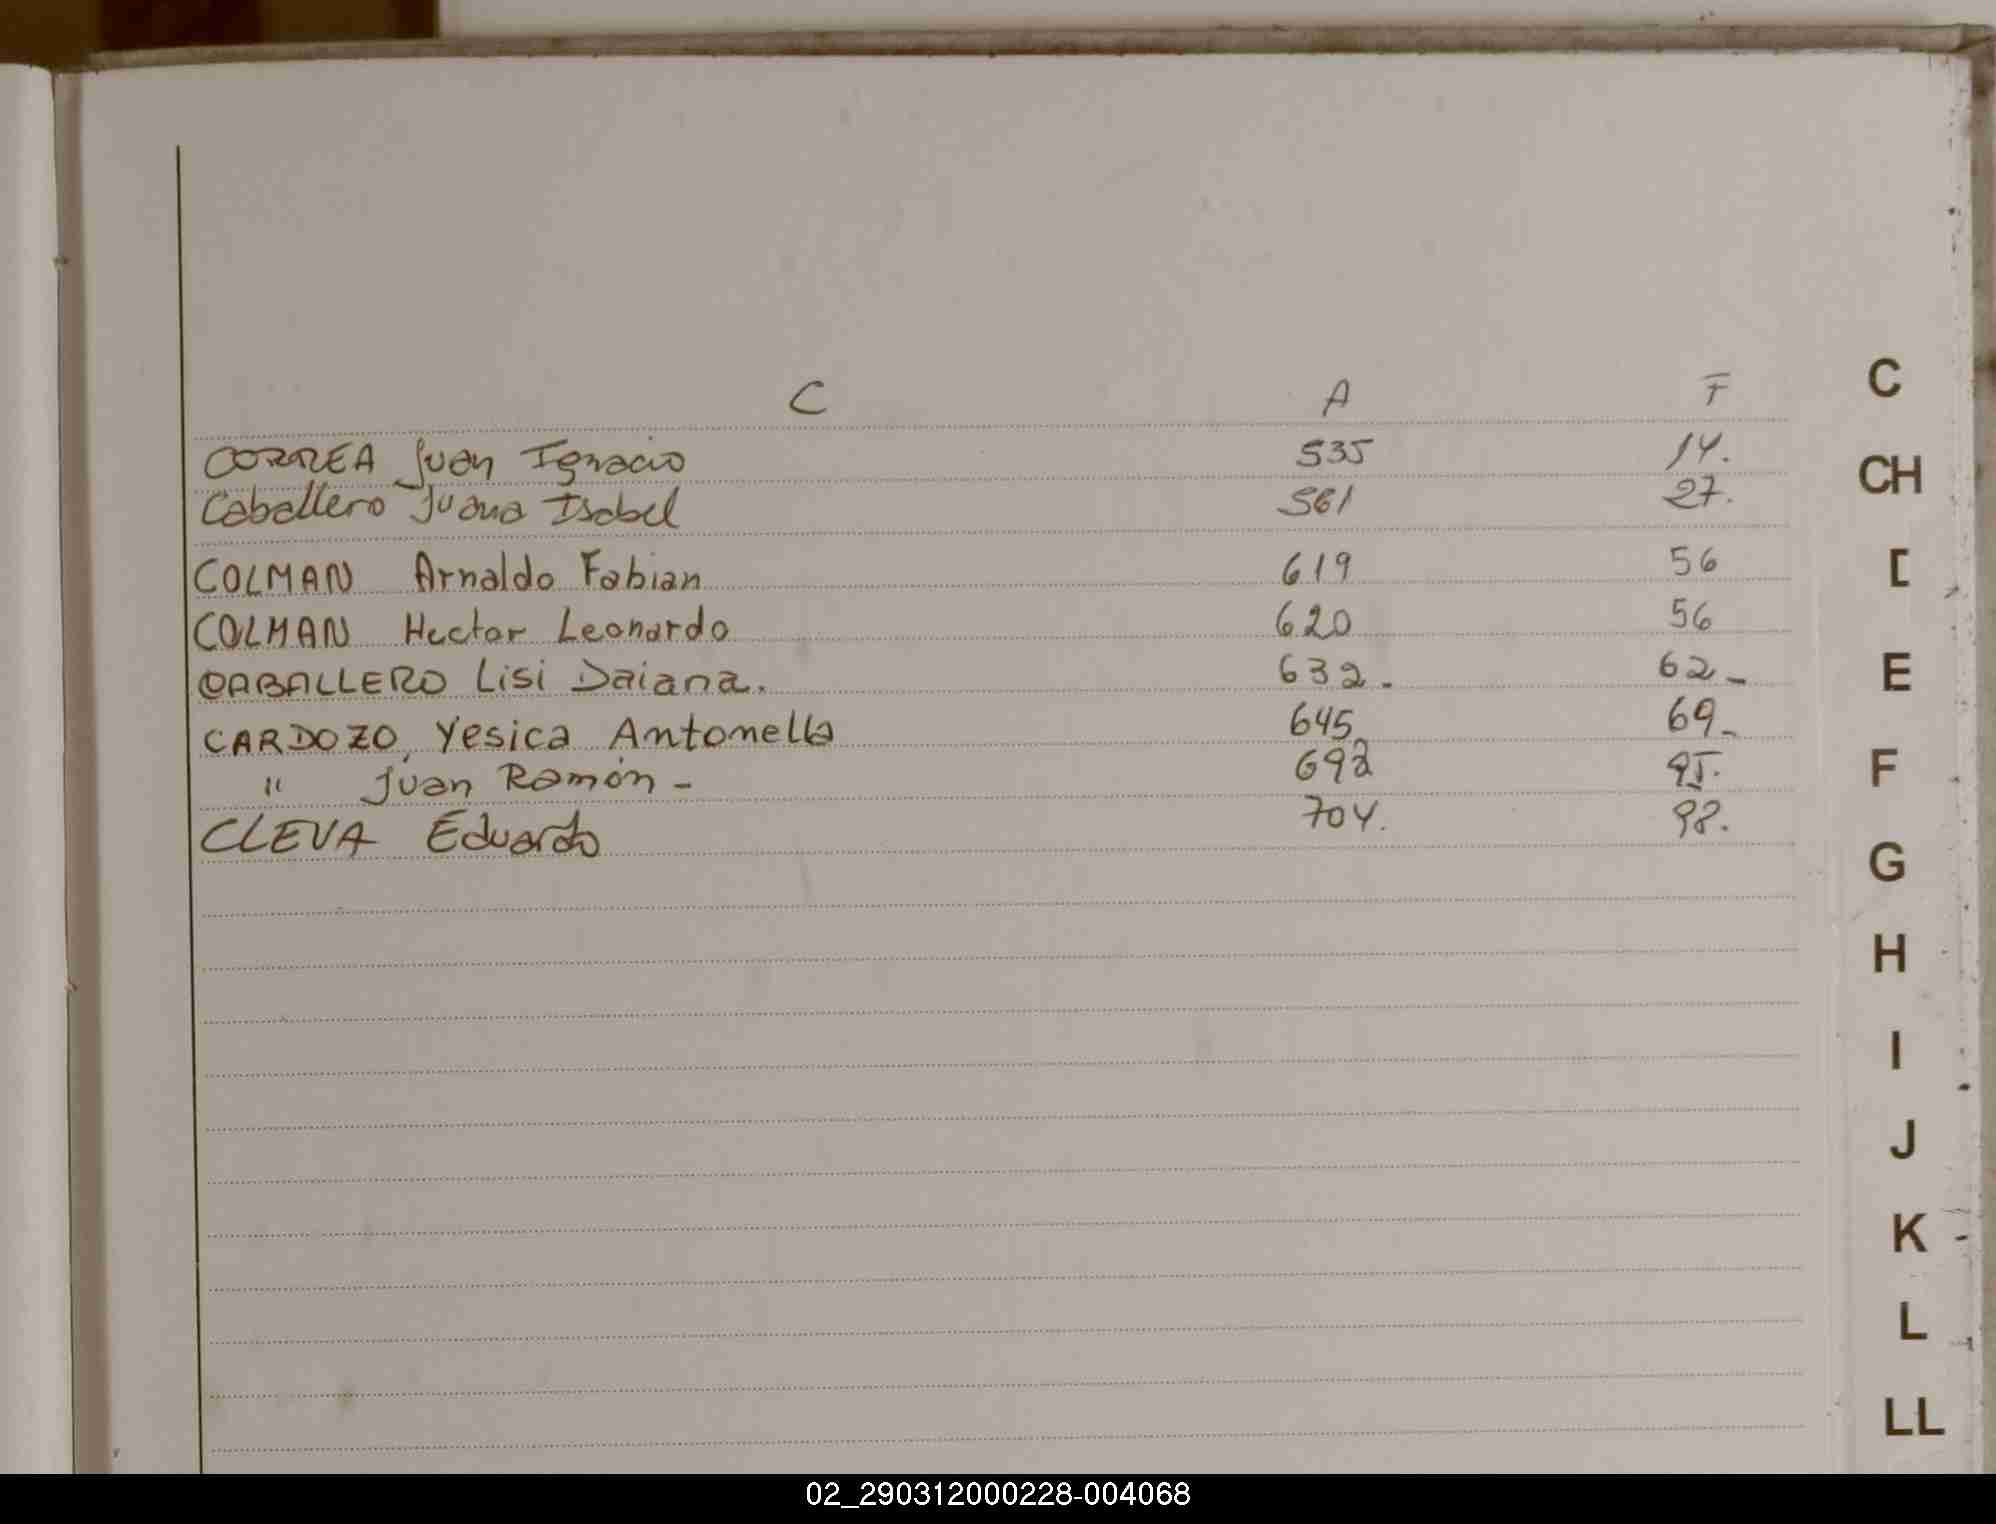 C A F
CORREA Juan Ignacio 535 14.
Caballero Juana Isabel 561 27.
COLMAN Arnaldo Fabian 619 56
COLMAN Hector Leonardo 620 56
CABALLERO Lisi Daiana. 632. 62-
CARDOZO, Yesica Antonella 645 69-
" Juan Ramón - 692 95.
CLEVA Eduardo 704. 98.
C
CH
D
E
F
G
H
I
J
K
L
LL
02_290312000228-004068